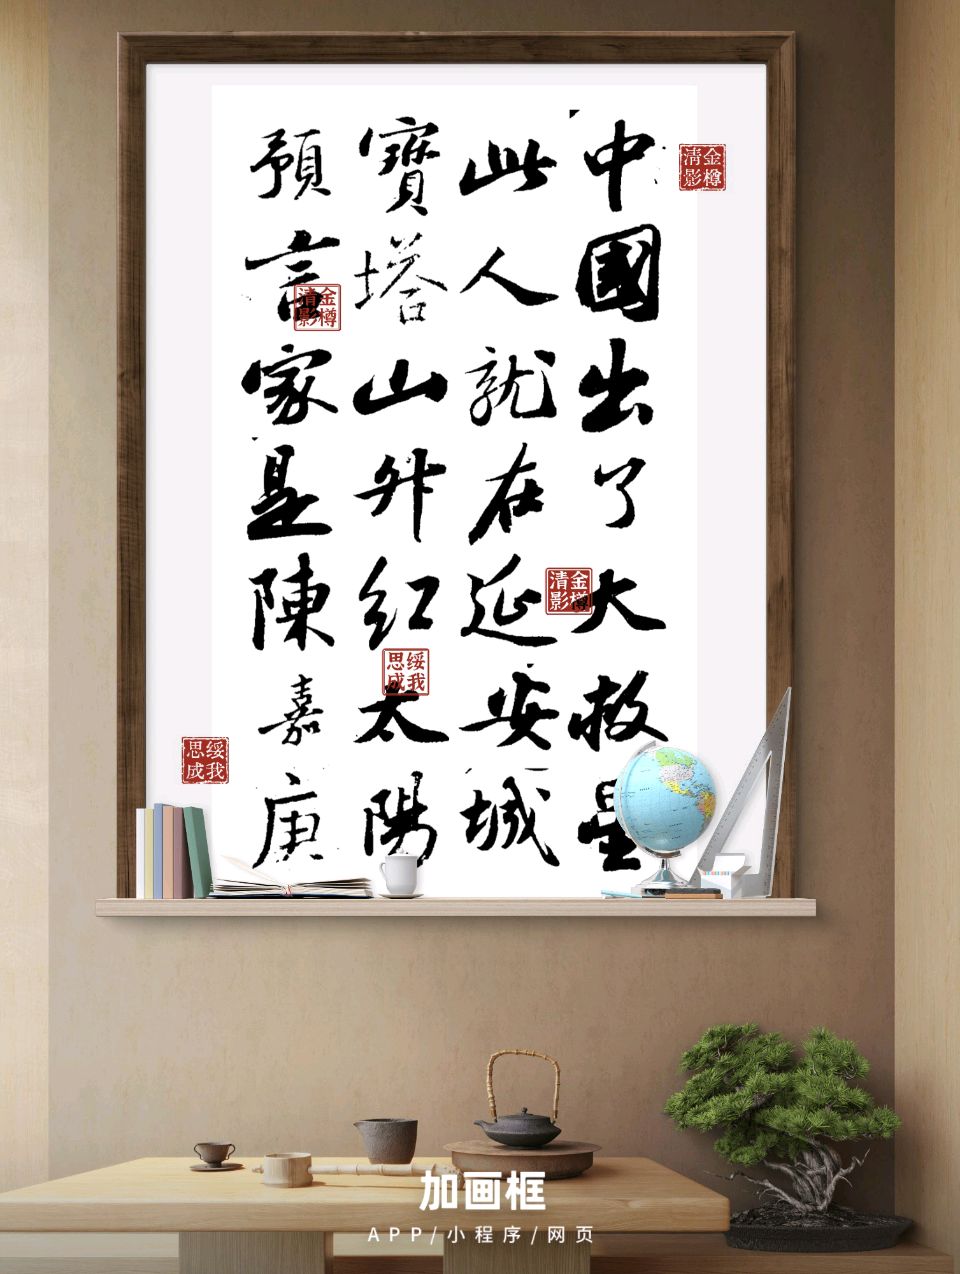 中國出了大救星
此人就在延安城
寶塔山升紅太陽
預言家是陳嘉庚
金樽清影
金樽清影
金樽清影
綏我思成
绥我思成
加画框
APP/小程序/网页